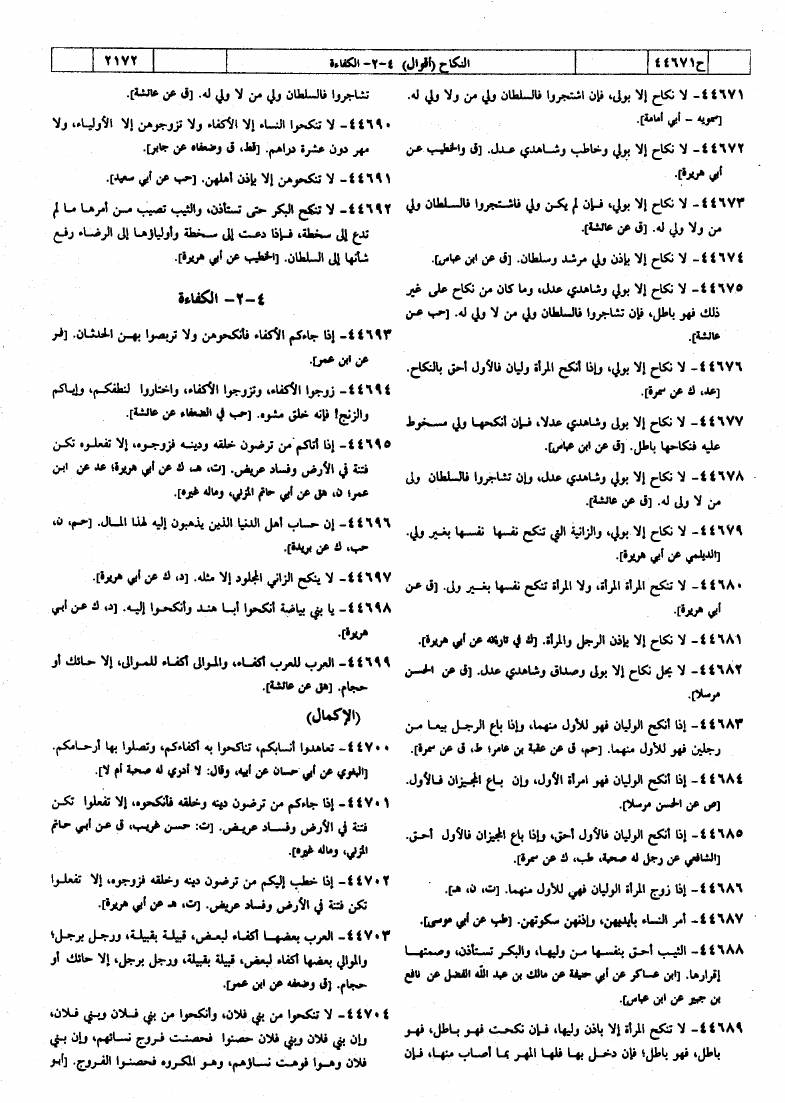 ح٤٤٦٧١ النكاح (أقوال) ٤-٢- الكفاءة ٢١٧٢
٤٤٦٧١- لا نكاح إلا بولى، فإن اشتجروا فالسلطان ولي من ولا ولي له.
[سمويه - أبي أمامة].
٤٤٦٧٢- لا نكاح إلا بولي وخاطب وشاهدي عدل. [ق والخطيب عن
أبي هريرة].
٤٤٦٧٣- لا نكاح إلا بولي، فإن لم يكن ولي فاشتجروا فالسلطان ولي
من ولا ولي له. [ق عن عائشة].
٤٤٦٧٤- لا نكاح إلا بإذن ولي مرشد وسلطان. [ق عن ابن عباس].
٤٤٦٧٥- لا نكاح إلا بولي وشاهدي عدل، وما كان من نكاح على غير
ذلك فهو باطل، فإن تشاجروا فالسلطان ولي من لا ولي له. [حب عن
عائشة].
٤٤٦٧٦- لا نكاح إلا بولي، وإذا أنكح المرأة وليان فالأول أحق بالنكاح.
[عد، ك عن سمرة].
٤٤٦٧٧- لا نكاح إلا بولى وشاهدي عدلا، فإن أنكحها ولي مسخوط
عليه فنكاحها باطل. [ق عن ابن عباس].
٤٤٦٧٨- لا نكاح إلا بولي وشاهدي عدل، وإن تشاجروا فالسلطان ولى
من لا ولى له. [ق عن عائشة].
٤٤٦٧٩- لا نكاح إلا بولي، والزانية التي تنكح نفسها نفسها بغير ولي.
[الديلمي عن أبي هريرة].
٤٤٦٨٠- لا تنكح المرأة المرأة، ولا المرأة تنكح نفسها بغير ولى. [ق عن
أبي هريرة].
٤٤٦٨١- لا نكاح إلا بإذن الرجل والمرأة. [ك في تاريخه عن أبي هريرة].
٤٤٦٨٢- لا يحل نكاح إلا بولى وصداق وشاهدي عدل. [ق عن الحسن
مرسلا].
٤٤٦٨٣- إذا أنكح الوليان فهو للأول منهما، وإذا باع الرجل بيعا من
رجلين فهو للأول منهما. [حم، ق عن عقبة بن عامر؛ ط، ق عن سمرة].
٤٤٦٨٤- إذا أنكح الوليان فهو امرأة الأول، وإن باع المجيزان فالأول.
[ص عن الحسن مرسلا].
٤٤٦٨٥- إذا أنكح الوليان فالأول أحق، وإذا باع المجيزان فالأول أحق.
[الشافعي عن رجل له صحبة، طب، ك عن سمرة].
٤٤٦٨٦- إذا زوج المرأة الوليان فهي للأول منهما. [ت، ن، هـ].
٤٤٦٨٧- أمر النساء بأيديهن، وإذنهن سكوتهن. [طب عن أبي موسى].
٤٤٦٨٨- الثيب أحق بنفسها من وليها، والبكر تستأذن، وصمتها
إقرارها. [ابن عساكر عن أبي حنيفة عن مالك بن عبد الله الفضل عن نافع
بن جبير عن ابن عباس].
٤٤٦٨٩- لا تنكح المرأة إلا باذن وليها، فإن نكحت فهو باطل، فهو
باطل، فهو باطل؛ فإن دخل بها فلها المهر بما أصاب منها، فإن
تشاجروا فالسلطان ولي من لا ولي له. [ق عن عائشة].
٤٤٦٩٠- لا تنكحوا النساء إلا الأكفاء ولا تزوجوهن إلا الأولياء، ولا
مهر دون عشرة دراهم. [قط، ق وضعفاه عن جابر].
٤٤٦٩١- لا تنكحوهن إلا بإذن أهلهن. [حب عن أبي سعيد].
٤٤٦٩٢- لا تنكح البكر حتى تستأذن، والثيب تصيب من أمرها ما لم
تدع إلى سخطة، فإذا دعت إلى سخطة وأولياؤها إلى الرضاء رفع
شأنها إلى السلطان. [الخطيب عن أبي هريرة].
٤-٢- الكفاءة
٤٤٦٩٣- إذا جاءكم الأكفاء فأنكحوهن ولا تربصوا بهن الحدثان. [فر
عن ابن عمر].
٤٤٦٩٤- زوجوا الأكفاء، وتزوجوا الأكفاء، واختاروا لنطفكم، وإياكم
والزنج! فإنه خلق مشوه. [حب في الضعفاء عن عائشة].
٤٤٦٩٥- إذا أتاكم من ترضون خلقه ودينه فزوجوه، إلا تفعلوه تكن
فتنة في الأرض وفساد عريض. [ت، هـ، ك عن أبي هريرة؛ عد عن ابن
عمر؛ ن، هق عن أبي حاتم المزني، وماله غيره].
٤٤٦٩٦- إن حساب أهل الدنيا الذين يذهبون إليه لهذا المال. [حم، ن،
حب، ك عن بريدة].
٤٤٦٩٧- لا ينكح الزاني المجلود إلا مثله. [د، ك عن أبي هريرة].
٤٤٦٩٨- يا بني بياضة أنكحوا أبا هند وأنكحوا إليه. [د، ك عن أبي
هريرة].
٤٤٦٩٩- العرب للعرب أكفاء، والموالى أكفاء للموالى، إلا حائك أو
حجام. [هق عن عائشة].
(الإكمال)
٤٤٧٠٠- تعاهدوا أنسابكم، تناكحوا به أكفاءكم، وتصلوا بها أرحامكم.
[البغوي عن أبي حسان عن أبيه، وقال: لا أدري له صحبة أم لا].
٤٤٧٠١- إذا جاءكم من ترضون دينه وخلقه فأنكحوه، إلا تفعلوا تكن
فتنة في الأرض وفساد عريض. [ت: حسن غريب، ق عن أبي حاتم
المزني، وماله غيره].
٤٤٧٠٢- إذا خطب إليكم من ترضون دينه وخلقه فزوجوه، إلا تفعلوا
تكن فتنة في الأرض وفساد عريض. [ت، هـ عن أبي هريرة].
٤٤٧٠٣- العرب بعضها أكفاء لبعض، قبيلة بقبيلة، ورجل برجل؛
والموالي بعضها أكفاء لبعض، قبيلة بقبيلة، ورجل برجل، إلا حائك أو
حجام. [ق وضعفه عن ابن عمر].
٤٤٧٠٤- لا تنكحوا من بني فلان، وأنكحوا من بني فلان وبني فلان،
وإن بني فلان وبني فلان حصنوا فحصنت فروج نسائهم، وإن بني
فلان وهوا فوهت نساؤهم، وهو المكروه فحصنوا الفروج. [أبو